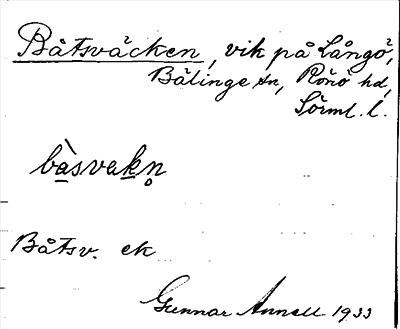 Båtsväcken, vik på Långö,
Bälinge sn, Rönö hd,
Sörml. l.
bàsvakn̥
Båtsv. ek
Gunnar Annell 1933